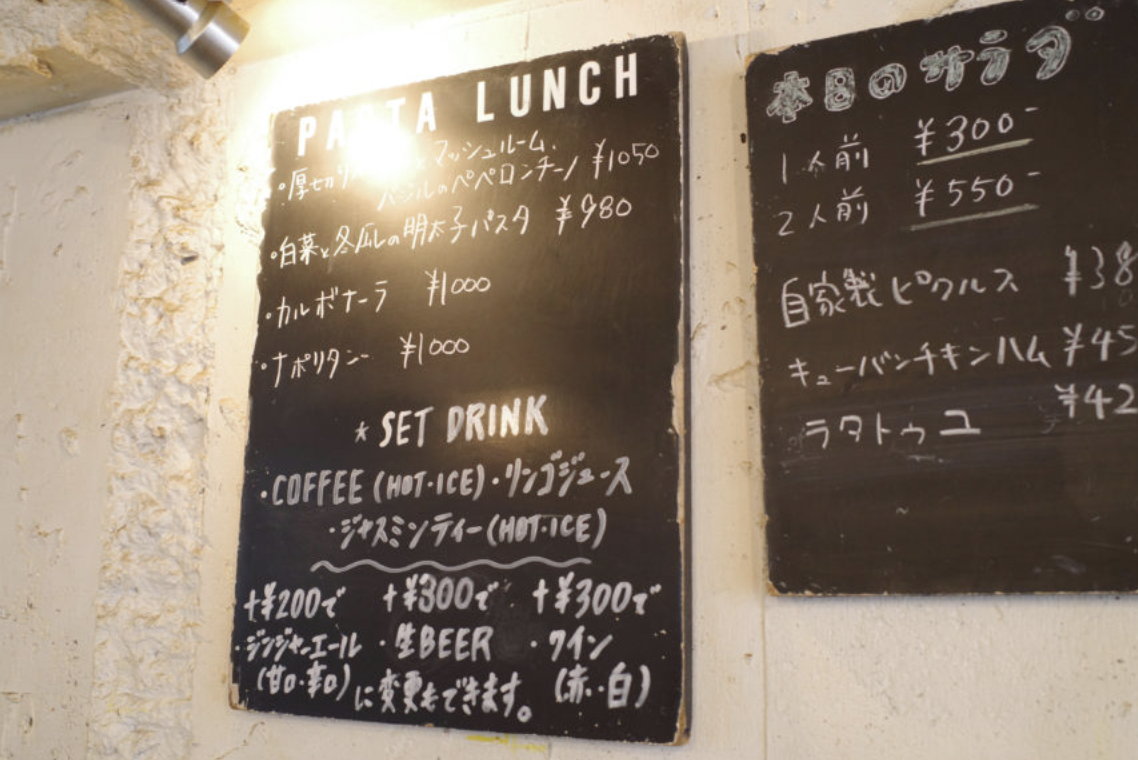 PASTA LUNCH
・厚切り マッシュルーム、
バジルのペペロンチーノ ¥1050
・白菜と冬瓜の明太子パスタ ¥980
・カルボナーラ ¥1000
・ナポリタン ¥1000
* SET DRINK
・COFFEE (HOT・ICE)・リンゴジュース
・ジャスミンティー(HOT・ICE)
+¥200で +¥300で +¥300で
・ジンジャーエール ・生BEER ・ワイン
(甘口・辛口) に変更もできます。 (赤・白)
本日のサラダ
1人前 ¥300-
2人前 ¥550-
自家製ピクルス ¥38
キューバンチキンハム ¥45
ラタトゥユ ¥42